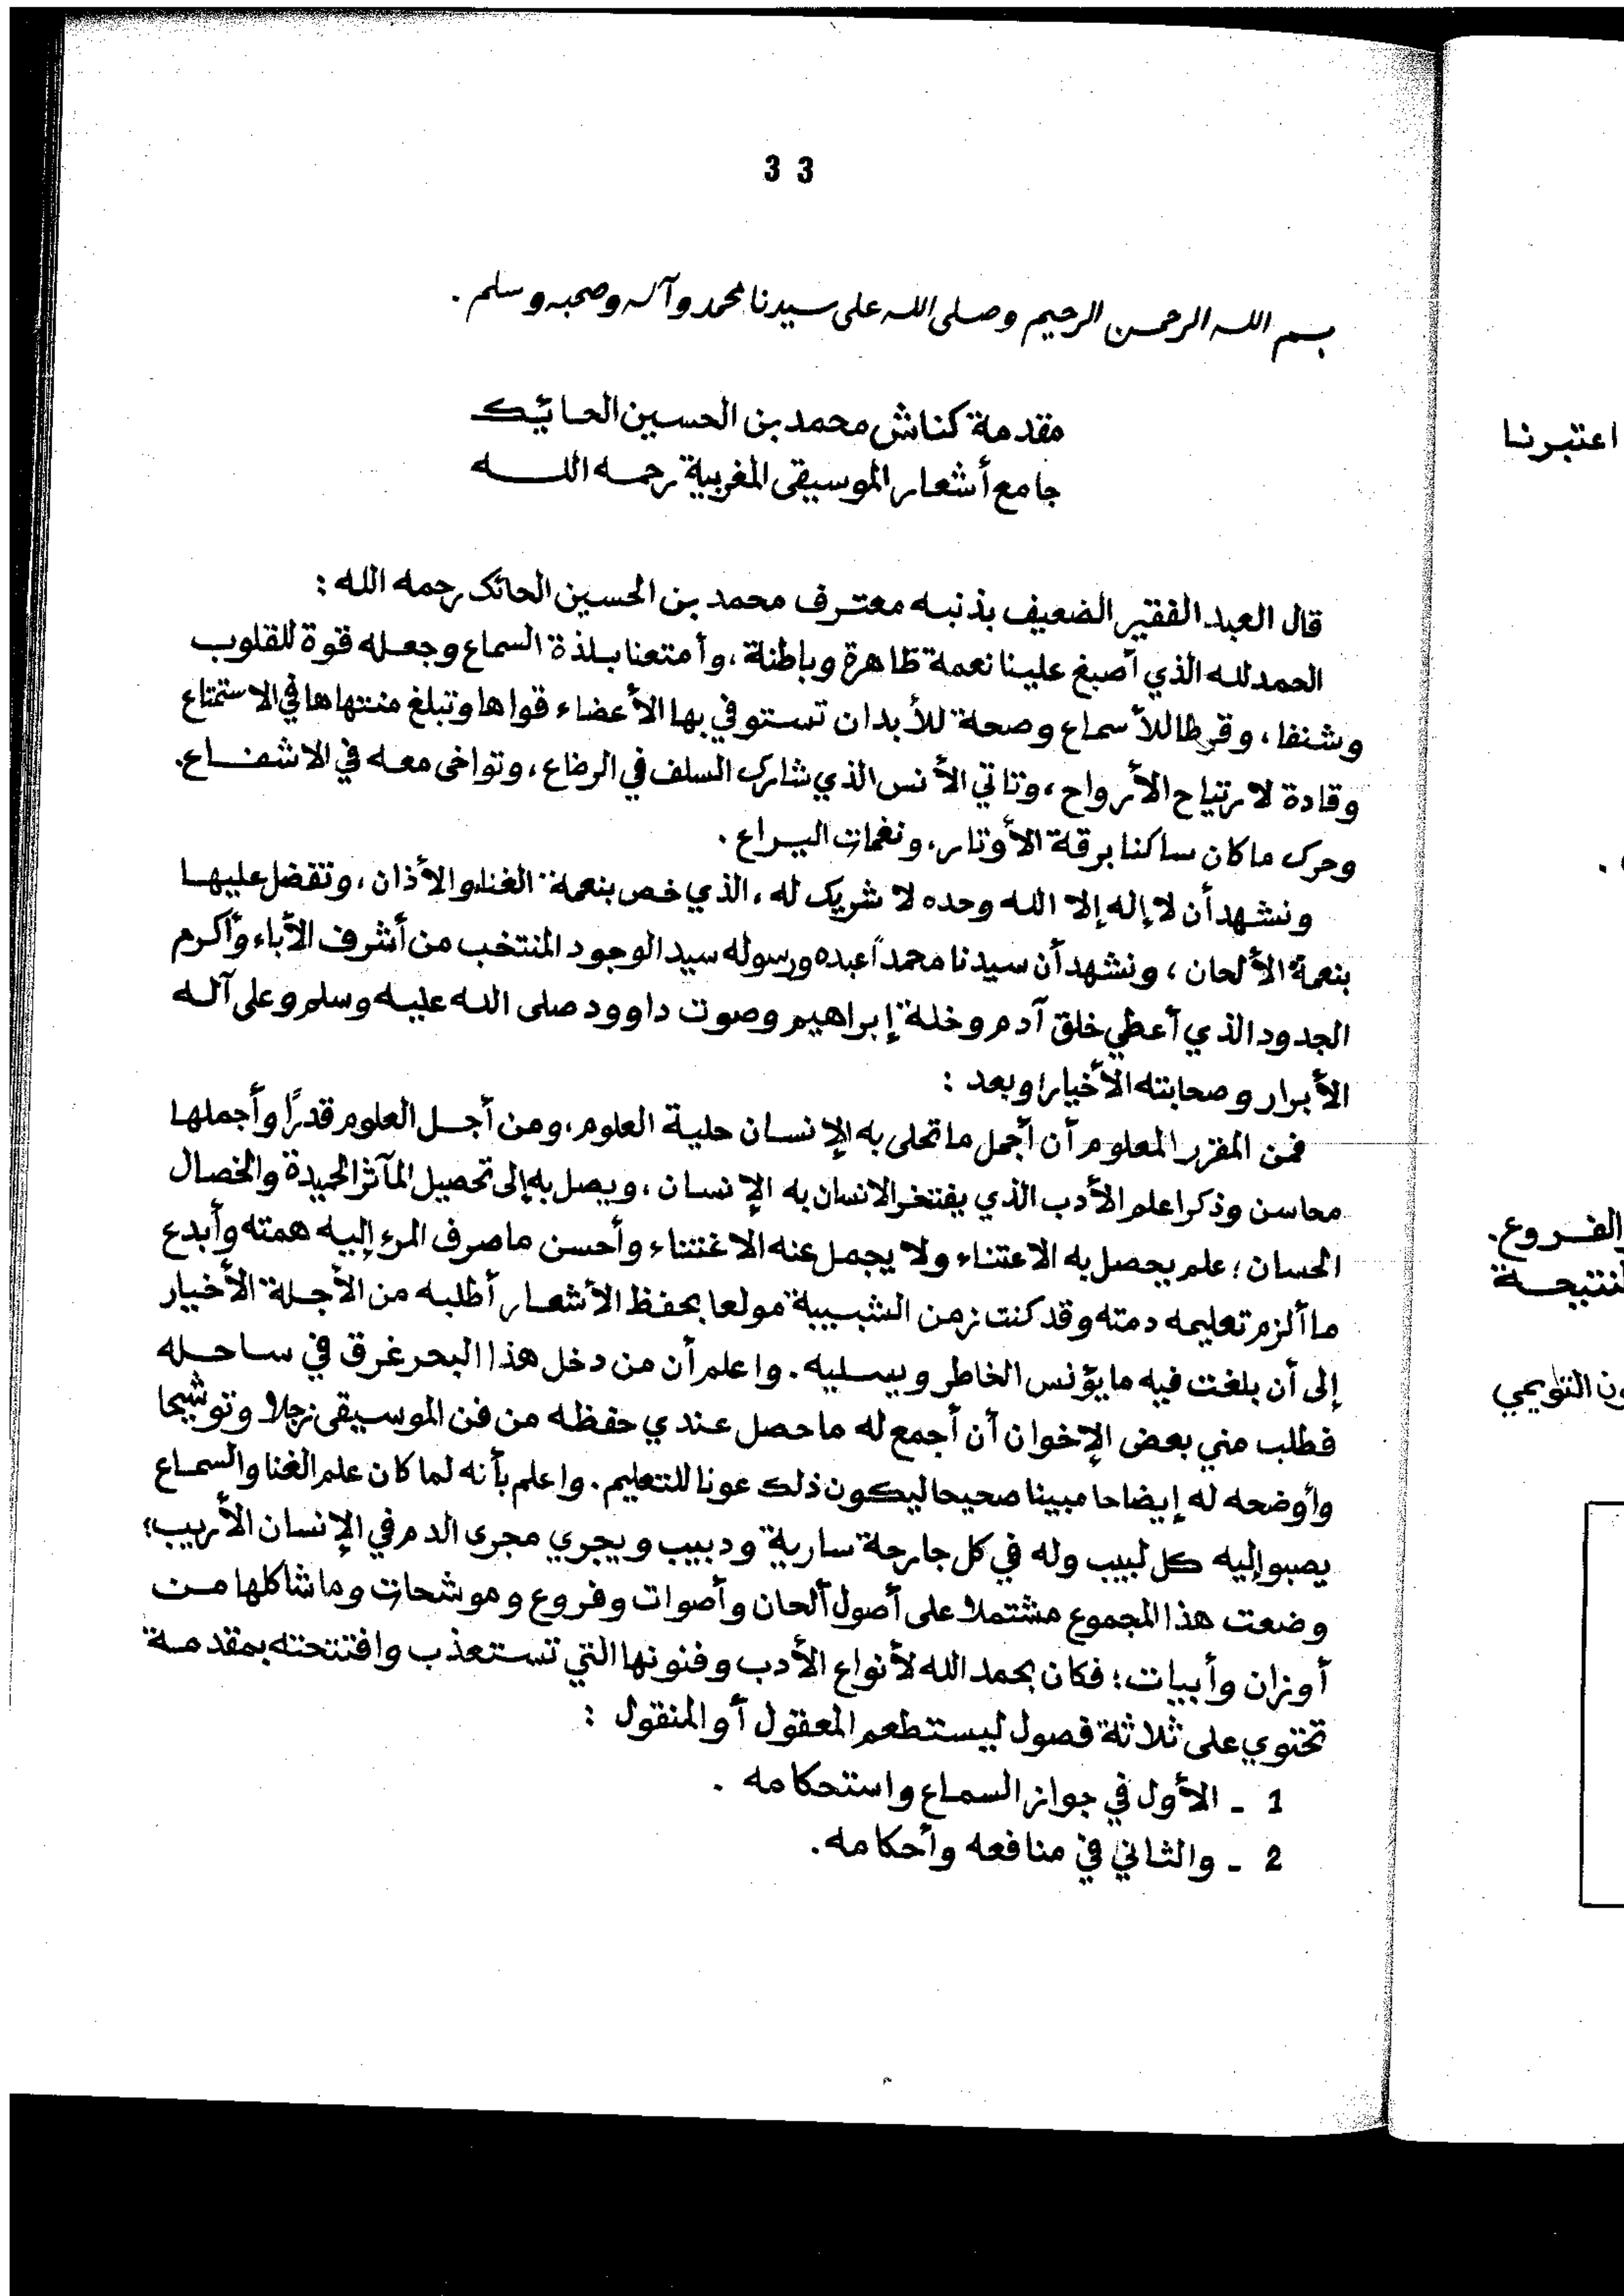 33
بسم الله الرحمن الرحيم وصلى الله على سيدنا محمد وآله وصحبه وسلم .
مقدمة كناش محمد بن الحسين الحائك
جامع أشعار الموسيقى المغربية رحمه الله
قال العبد الفقير الضعيف بذنبه معترف محمد بن الحسين الحائك رحمه الله :
الحمد لله الذي أصبغ علينا نعمة ظاهرة وباطنة ، وأمتعنا بلذة السماع وجعله قوة للقلوب
وشنفا ، وقرطا للأسماع وصحة للأبدان تستوفي بها الأعضاء قواها وتبلغ منتهاها في الاستمتاع
وقادة لارتياح الأرواح ، وتاتي الأنس الذي شارك السلف في الرضاع ، وتواخى معه في الاشفاع.
وحرك ما كان ساكنا برقة الأوتار، ونغمات اليراع .
ونشهد أن لا إله إلا الله وحده لا شريك له ، الذي خص بنعمة الغناء والأذان ، وتفضل عليها
بنعمة الألحان ، ونشهد أن سيدنا محمداً عبده ورسوله سيد الوجود المنتخب من أشرف الأباء وأكرم
الجدود الذي أعطي خلق آدم وخلة إبراهيم وصوت داوود صلى الله عليه وسلم وعلى آله
الأبرار وصحابته الأخيار وبعد :
فمن المقرر المعلوم أن أجمل ما تحلى به الإنسان حلية العلوم، ومن أجل العلوم قدرًا وأجملها
محاسن وذكرا علم الأدب الذي يفتخر الانسان به الإنسان ، ويصل به إلى تحصيل المآثر الحميدة والخصال
الحسان ؛ علم يحصل به الاعتناء ولا يجمل عنه الاغتناء وأحسن ما صرف المرء إليه همته وأبدع
ما ألزم تعليمه دمته وقد كنت زمن الشبيبة مولعا بحفظ الأشعار أطلبه من الأجلة الأخيار
إلى أن بلغت فيه ما يؤنس الخاطر ويسليه . واعلم أن من دخل هذا البحر غرق في ساحله
فطلب مني بعض الإخوان أن أجمع له ما حصل عندي حفظه من فن الموسيقى زجلا وتوشيحا
وأوضحه له إيضاحا مبينا صحيحا ليكون ذلك عونا للتعليم . واعلم بأنه لما كان علم الغنا والسماع
يصبو إليه كل لبيب وله في كل جارحة سارية ودبيب ويجري مجرى الدم في الإنسان الأريب؛
وضعت هذا المجموع مشتملا على أصول ألحان وأصوات وفروع وموشحات وما شاكلها من
أوزان وأبيات ؛ فكان بحمد الله لأنواع الأدب وفنونها التي تستعذب وافتتحته بمقدمة
تحتوي على ثلاثة فصول ليستطعم المعقول أو المنقول :
1 - الأول في جواز السماع واستحكامه .
2 - والثاني في منافعه وأحكامه .
اعتبرنا
الفروع.